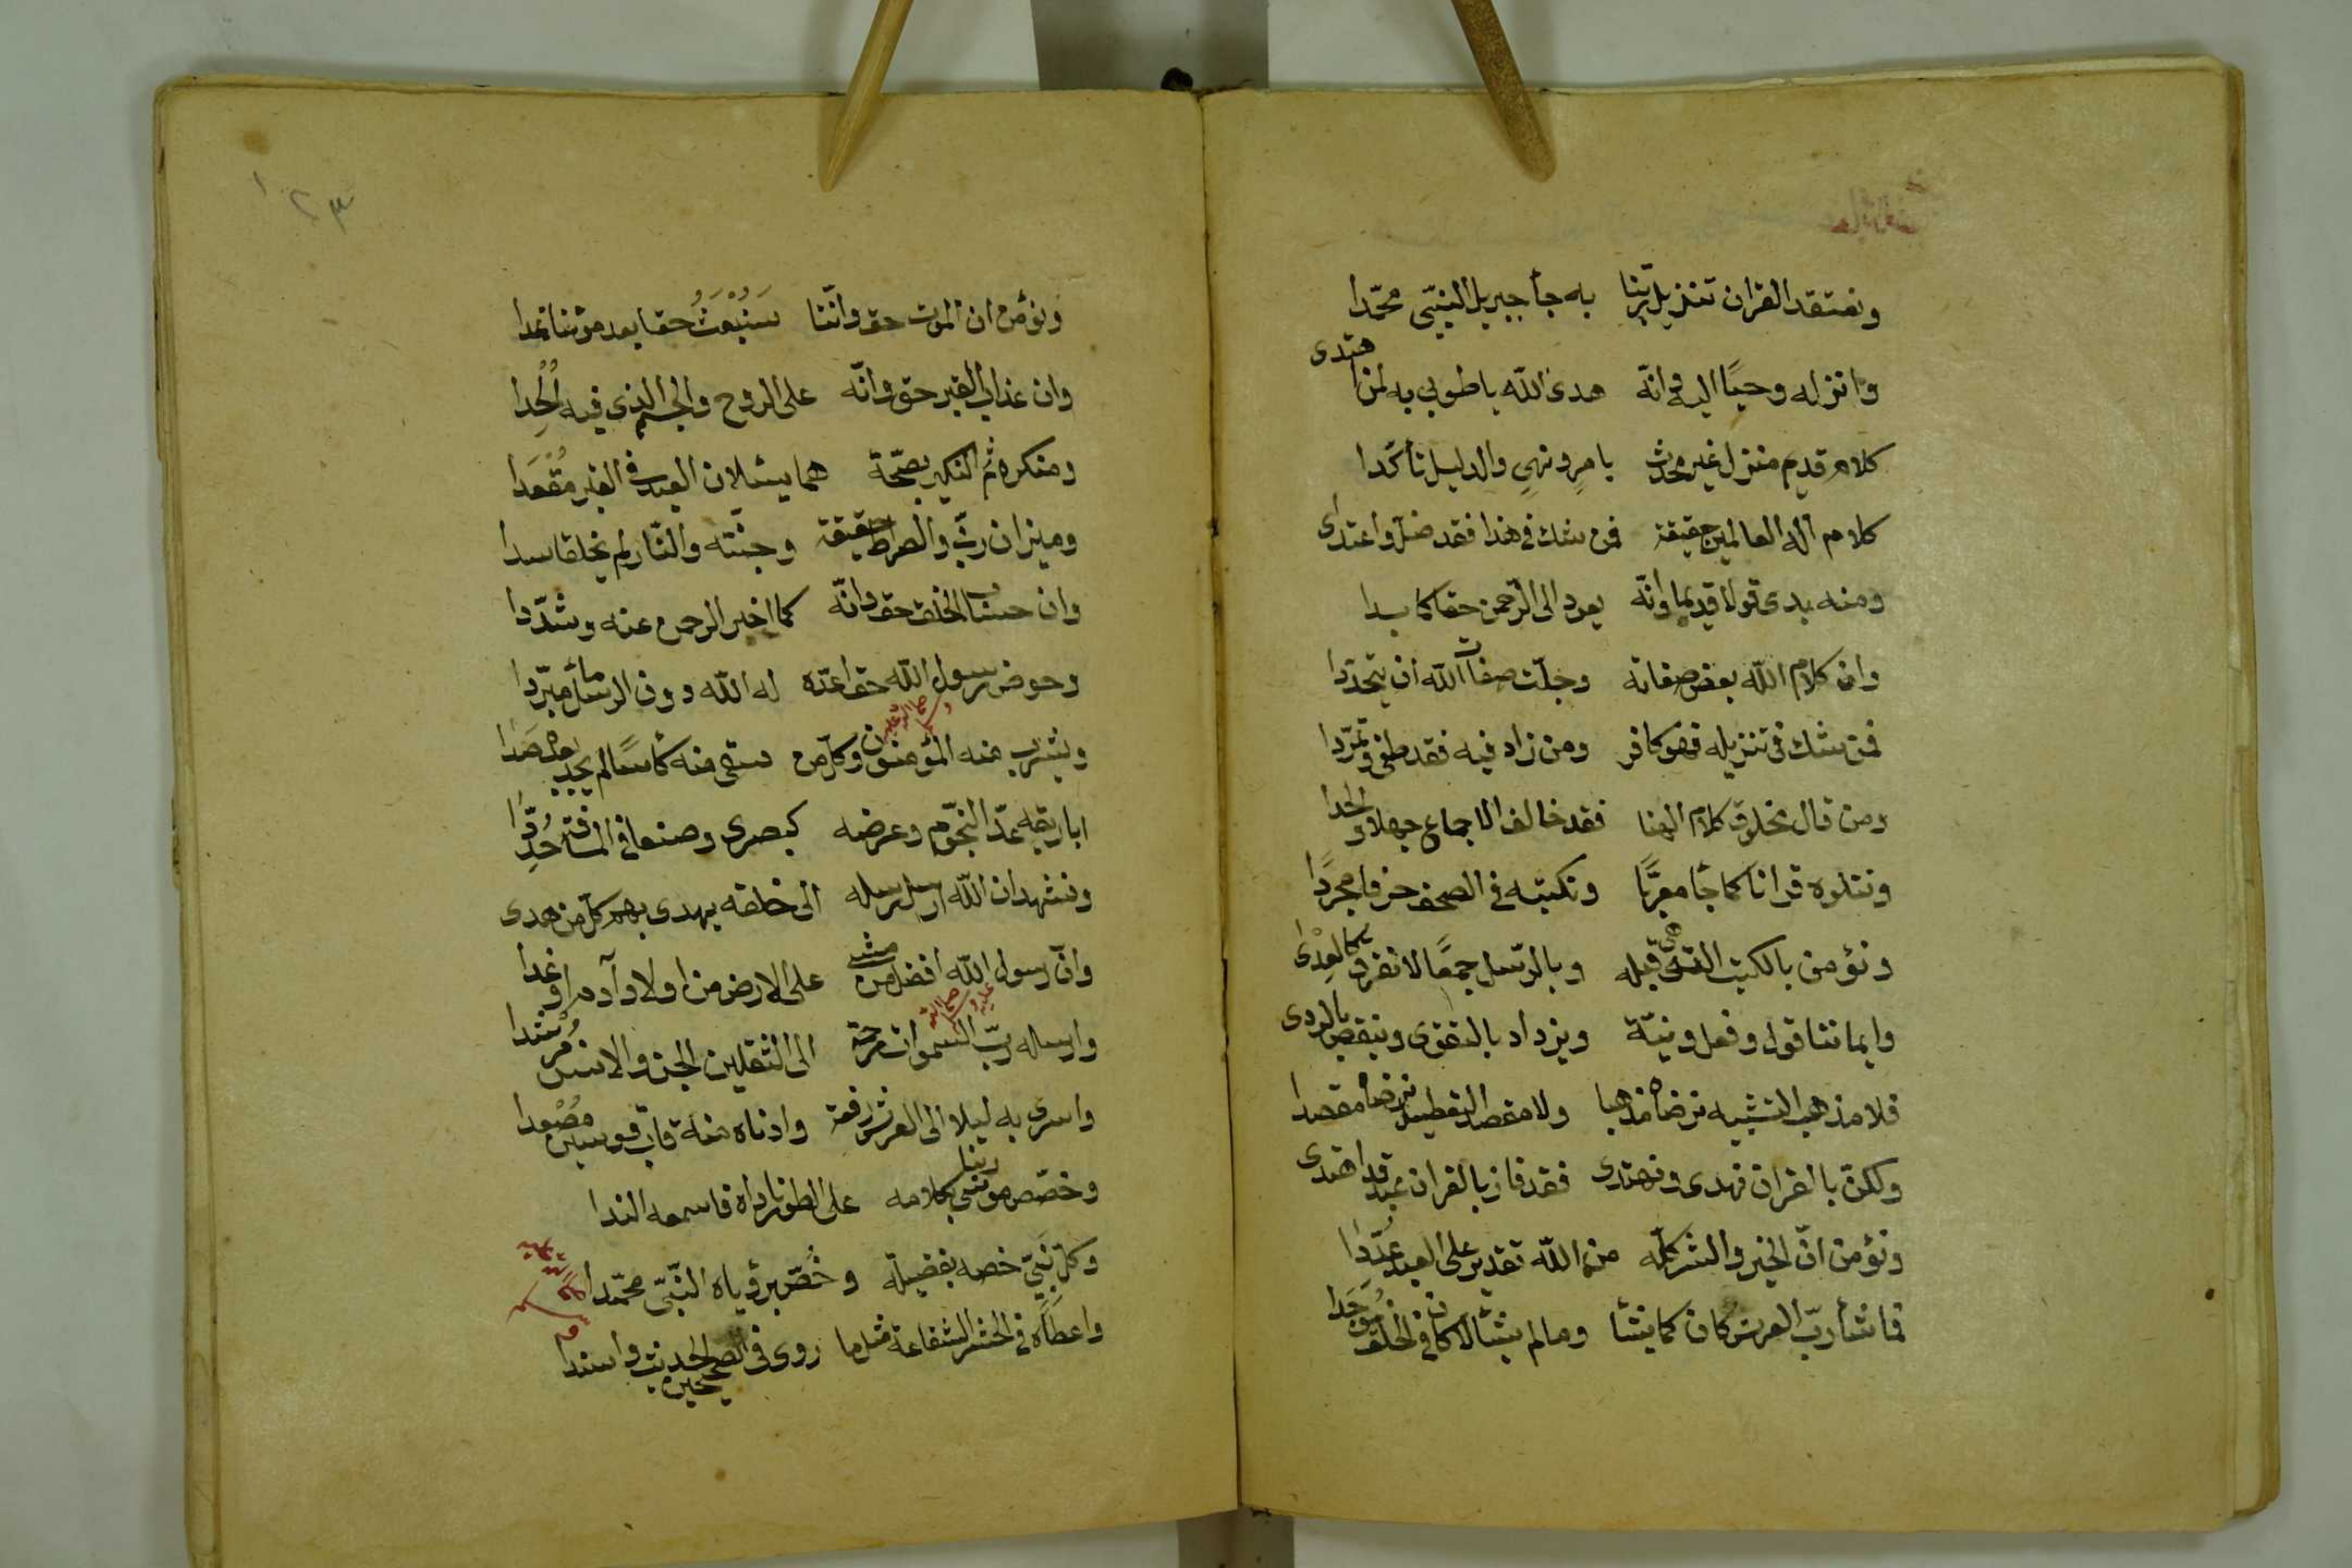 ونعتقد القران تنزيل ربّنا به جأ جبريل النبيّ محمّدا
وانزله وحيًا اليه وانّه هدى الله يا طوبى به لمن اهتدى
كلام قديم منزل غير محدث بامرٍ ونهيٍ والدليل تأكّدا
كلام اله العالمين حقيقة فمن شك في هذا فقد ضلّ واعتدى
ومنه بدى قولا قديما وانّه يعود الى الرّحمن حقا كما بدا
وان كلام الله بعض صفاته وجلّت صفات الله ان يتحدّدا
فمن شك في تنزيله فهو كافر ومن زاد فيه فقد طغى وتمرّدا
ومن قال مخلوق كلام الهنا فقد خالف الاجماع جهلا والحدا
ونتلوه قرانا كما جأ معربًا ونكتبه في الصحف حرفا مجرّدا
ونؤمن بالكتب التي هي قبله وبالرّسل جمعًا لا نفرق كالعدى
وايماننا قول وفعل ونيّة ويزداد بالتقوى وينقص بالردى
فلا مذهب التشبيه نرضاه مذهبا ولا مقصد التعطيل نرضاه مقصدا
ولكن بالقران نهدى ونهتدى فقد فاز بالقران عبد قد اهتدى
ونؤمن انّ الخير والشر كلّه من الله تقدير على العبد عُدّدا
فما شأ ربّ العرش كان كما يشأ وما لم يشأ لا كان في الخلق مُوجَدا
١٢٣
ونؤمن ان الموت حق وانّنا سَنُبْعَثُ حقا بعد موتنا غدا
وان عذاب القبر حق وانّه على الروح والجسم الذي فيه اُلْحِدا
ومنكره ثم النكير بصحّة هما يسئلان العبد في القبر مُقْعَدا
وميزان ربّي والصراط حقيقة وجنّته والنّار لم يخلقا سدا
وان حساب الخلق حق وانّه كما اخبر الرحمن عنه وشدّدا
وحوض رسول الله حقا اعدّه له الله دون الرسل مأ مبرّدا
صلى الله عليه وسلم
ويشرب منه المؤمنون وكلّ من سقى منه كأسا لم يجد بعده صدا
اباريقه عدّ النجوم وعرضه كبصرى وصنعا في المسافة حُدِّدا
ونشهد ان الله ارسل رسله الى خلقه يهدى بهم كلّ من هدى
وانّ رسول الله افضل من مشى على الارض من اولاد آدم او غدا
صلى الله عليه وسلم
وارسله ربّ السموات رحمة الى الثقلين الجن والانس مُرْشدا
واسرى به ليلا الى العرش رفعة وادناه منه قاب قوسين مُصْعدا
وخصّص موسى ربنا بكلامه على الطور ناداه فاسمعه الندا
وكل نَبِيّ خصه بفضيلة وخُصّ برؤياه النّبيّ محمّدا
صلى الله عليه وسلم
واعطاه في الحشر الشفاعة مثل ما روى في الصحيحين الحديث واسندا